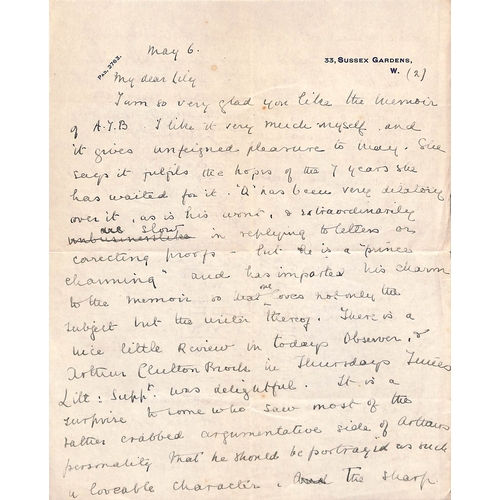 May 6.
Pad. 2783.
33, Sussex Gardens,
W. (2)
My dear Lily
I am so very glad you like the memoir
of A.J.B. I like it very much myself, and
it gives unfeigned pleasure to May. She
says it fulfils the hopes of the 7 years she
has waited for it. "Q" has been very dilatory
over it, as is his wont, & extraordinarily
slow
unbusinesslike in replying to letters or
correcting proofs - but he is a "prince
charming" and has imparted his charm
to the memoir so that one loves not only the
subject but the writer thereof. There is a
nice little Review in todays Observer, &
Arthur Clutton Brock in Thursdays Times
Litt: Suppt. was delightful. It is a
surprise to some who saw most of the
rather crabbed argumentative side of Arthurs
personality that he should be portrayed as such
a loveable character. And the sharp